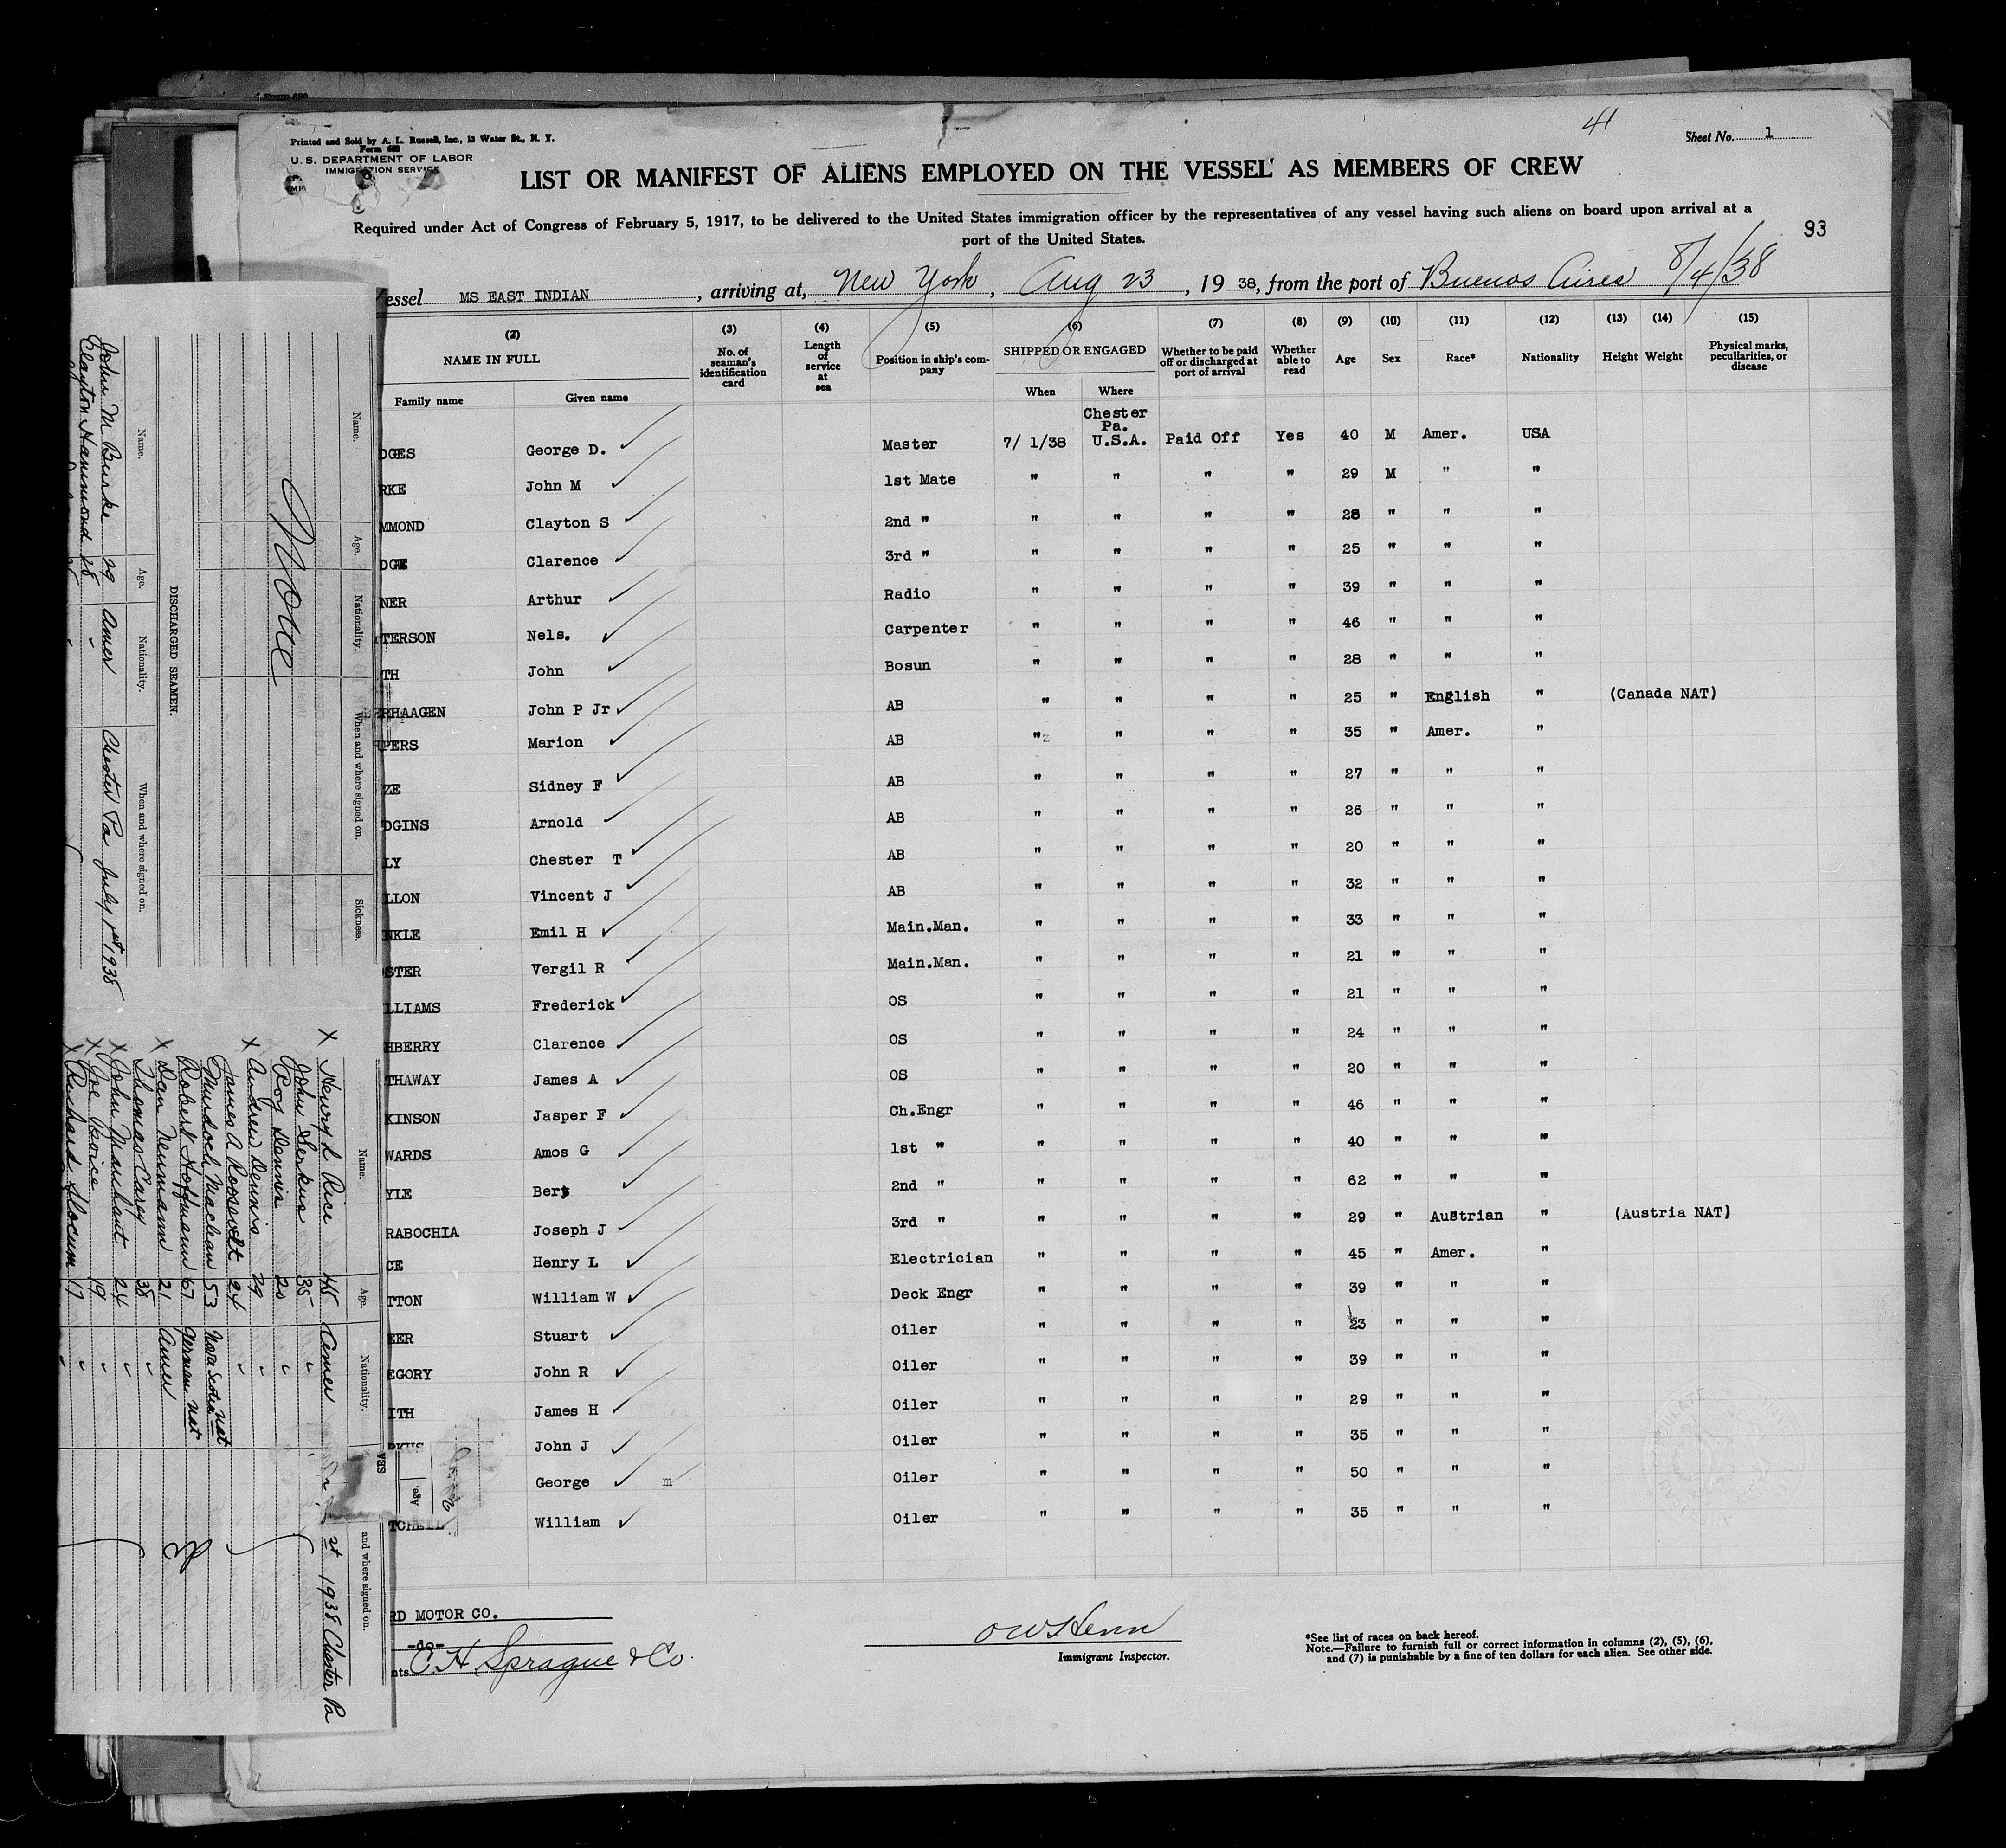 Form 680
Printed and Sold by A. L. Russell, Inc., 13 Water St., N. Y.
Form 680
U. S. DEPARTMENT OF LABOR
IMMIGRATION SERVICE
41
Sheet No. 1
LIST OR MANIFEST OF ALIENS EMPLOYED ON THE VESSEL AS MEMBERS OF CREW
Required under Act of Congress of February 5, 1917, to be delivered to the United States immigration officer by the representatives of any vessel having such aliens on board upon arrival at a
port of the United States.
93
essel MS EAST INDIAN, arriving at, New York, Aug 23, 1938, from the port of Buenos Aires 8/4/38
(2) (3) (4) (5) (6) (7) (8) (9) (10) (11) (12) (13) (14) (15)
NAME IN FULL No. of seaman's identification card Length of service at sea Position in ship's company SHIPPED OR ENGAGED Whether to be paid off or discharged at port of arrival Whether able to read Age Sex Race* Nationality Height Weight Physical marks, peculiarities, or disease
Family name Given name When Where
DGES George D. Master 7/ 1/38 Chester Pa. U.S.A. Paid Off Yes 40 M Amer. USA
RKE John M 1st Mate " " " " 29 M " "
MMOND Clayton S 2nd " " " " " 28 " " "
DGE Clarence 3rd " " " " " 25 " " "
NER Arthur Radio " " " " 39 " " "
TERSON Nels. Carpenter " " " " 46 " " "
TH John Bosun " " " " 28 " " "
RHAAGEN John P Jr AB " " " " 25 " English " (Canada NAT)
PERS Marion AB " " " " 35 " Amer. "
ZE Sidney F AB " " " " 27 " " "
DGINS Arnold AB " " " " 26 " " "
LY Chester T AB " " " " 20 " " "
LLON Vincent J AB " " " " 32 " " "
NKLE Emil H Main.Man. " " " " 33 " " "
STER Vergil R Main.Man. " " " " 21 " " "
LLIAMS Frederick OS " " " " 21 " " "
HBERRY Clarence OS " " " " 24 " " "
THAWAY James A OS " " " " 20 " " "
KINSON Jasper F Ch.Engr " " " " 46 " " "
WARDS Amos G 1st " " " " " 40 " " "
YLE Bert 2nd " " " " " 62 " " "
RABOCHIA Joseph J 3rd " " " " " 29 " Austrian " (Austria NAT)
CE Henry L Electrician " " " " 45 " Amer. "
TTON William W Deck Engr " " " " 39 " " "
EER Stuart Oiler " " " " 23 " " "
EGORY John R Oiler " " " " 39 " " "
ITH James H Oiler " " " " 29 " " "
RKUS John J Oiler " " " " 35 " " "
George m Oiler " " " " 50 " " "
TCHELL William Oiler " " " " 35 " " "
RD MOTOR CO.
-do-
nts C. H. Sprague & Co.
O W Henn
Immigrant Inspector.
*See list of races on back hereof.
Note.—Failure to furnish full or correct information in columns (2), (5), (6),
and (7) is punishable by a fine of ten dollars for each alien. See other side.
Name. Age. Nationality. When and where signed on. Sickness.
None
DISCHARGED SEAMEN.
Name. Age. Nationality. When and where signed on.
John M Burke 29 Amer Chester Pa July 1st 1938
Clayton Hammond 28 "
Name. Age. Nationality. and where signed on.
X Henry L Rice 45 Amer st 1938 Chester Pa
John Serkus 35 "
Roy Dennis 20 "
X Andrew Dennis 29 "
James A Roosevelt 24 "
Murdoch Maclean 53 Nova Scotia nat
Robert Hoffmann 67 German nat
X Dan Neumann 21 Amer
Thomas Carey 38 "
X John Marchant 24 "
X Joe Boice 19 "
X Richard Slocum 17 "
SEA
Age.